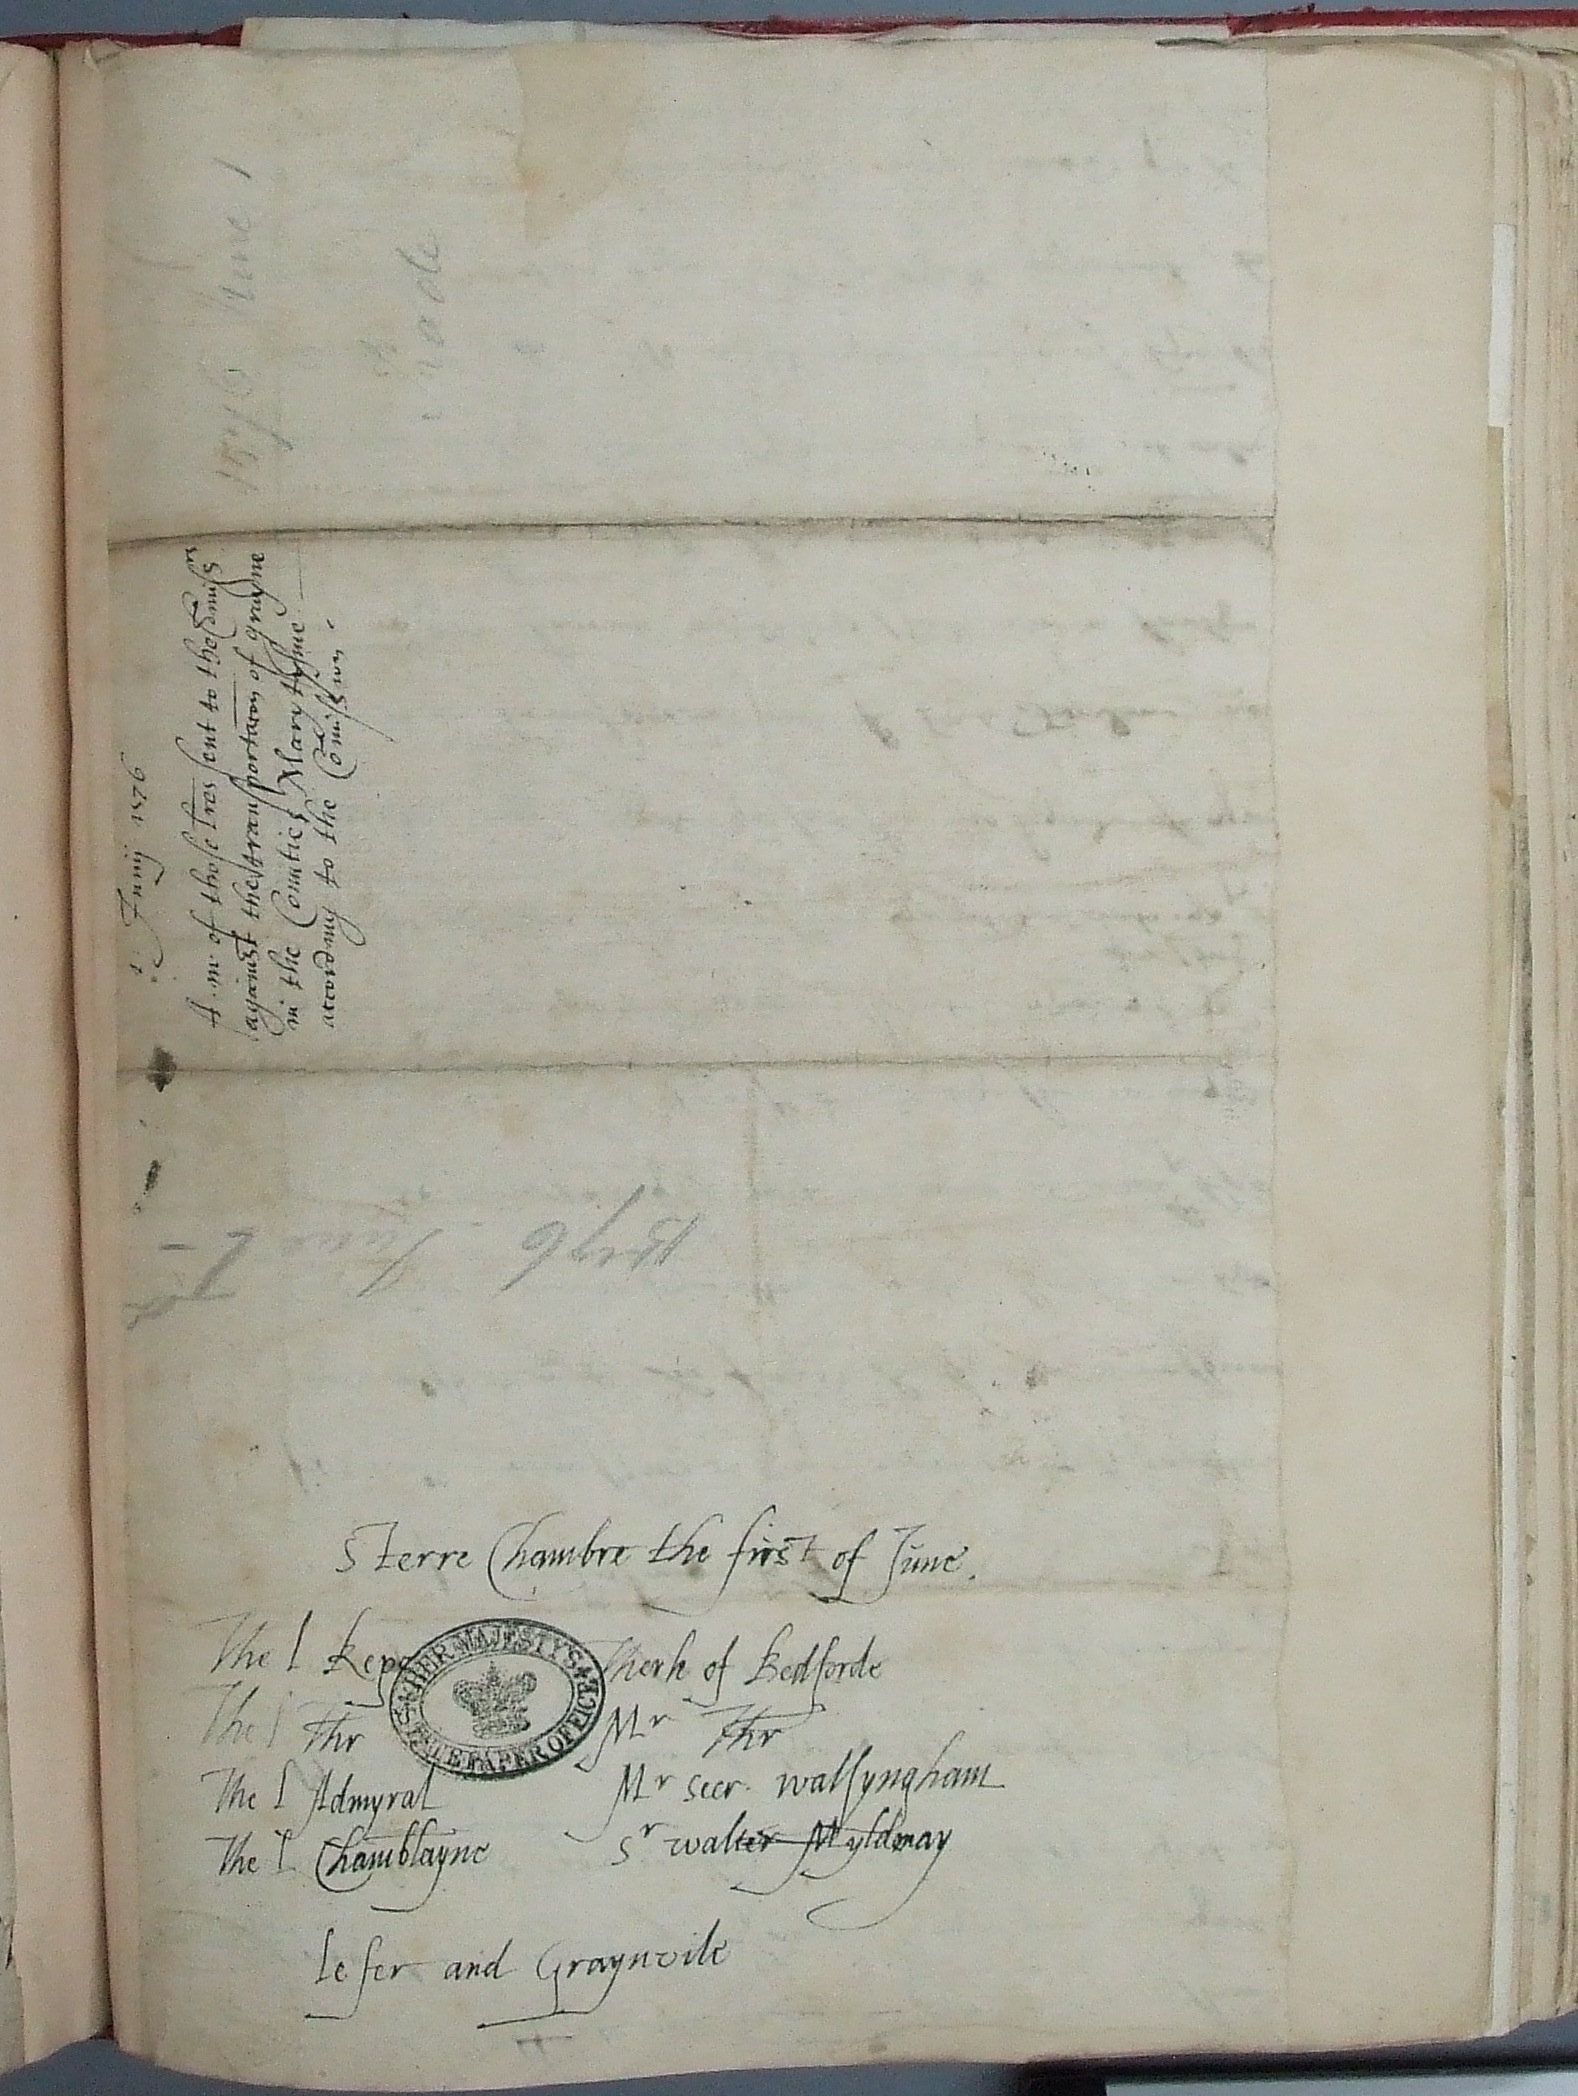 1576 June 1
Trade
1. Junij 1576
A. m. of those lres sent to the Comissrs
against the transportacon of grayne
in the Counties Marytyme
according to the Comission.
1576 June 1
Sterre Chambre the first of June.
The L Kepe
Therle of Bedforde
The L Thr
Mr Thr
The L Admyral
Mr Secr. Walsyngham
The L Chamblayne
Sr Walter Myldmay
HER MAJESTY'S STATE PAPER OFFICE
and Graynvile